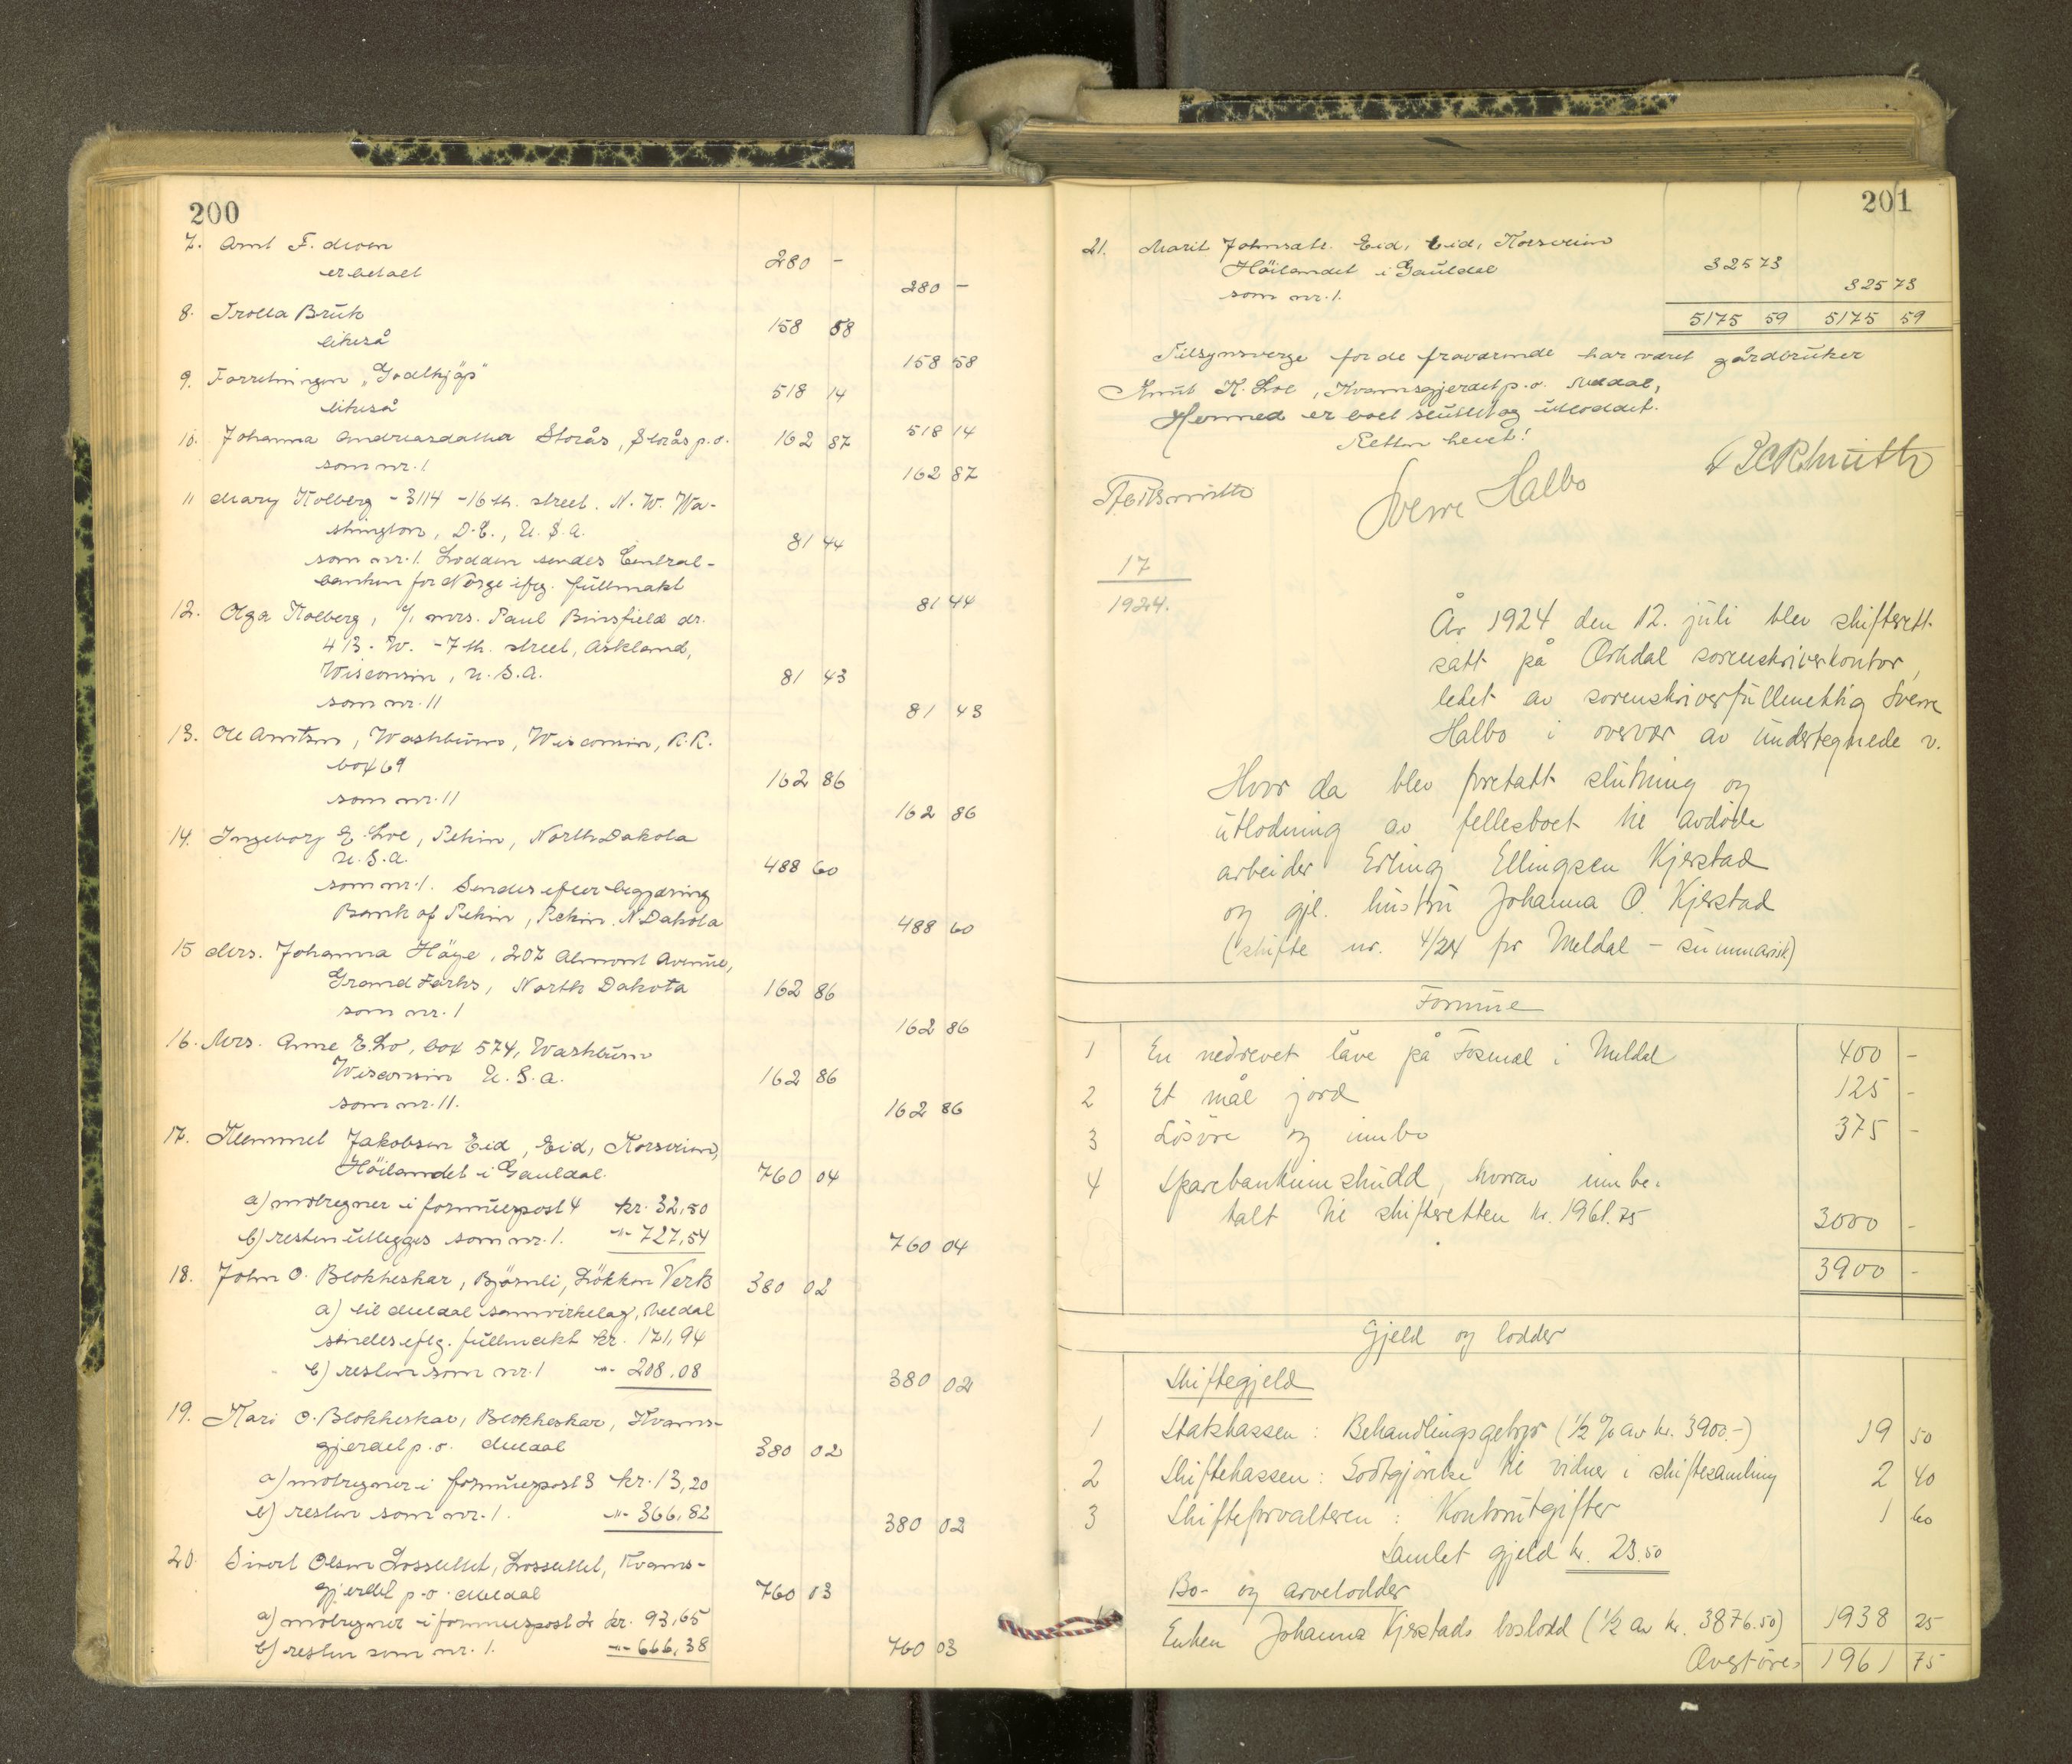 200
7. Arnt F. Moen 280 –
er betalt 280 –
8. Trolla Bruk 158 58
likeså 158 58
9. Forretningen „Godtkjöp" 518 14
likeså 518 14
10. Johanna Andreasdatter Storås, Storås p.o. 162 87
som nr. 1 162 87
11 Mary Kolberg - 3114 - 16 th. street. N. W. Wa-
shington, D.C., U. S. A. 81 44
som nr. 1. Lodden sendes Central-
banken for Norge iflg. fullmakt 81 44
12. Olga Kolberg, c/o mrs. Paul Binsfield dr.
413 - W. - 7 th. street, Ashland,
Wisconsin, U. S. A. 81 43
som nr. 11 81 43
13. Ole Arntsen, Washburn, Wisconsin, R.R.
box 69 162 86
som nr. 11 162 86
14. Ingeborg E. Loe, Pekin, North Dakota
U. S. A. 488 60
som nr. 1. Sendes efter begjæring
Bank of Pekin, Pekin. N Dakota 488 60
15 Mrs. Johanna Höye, 207 Almont Avenue,
Grand Forks, North Dakota 162 86
som nr. 1 162 86
16. Mrs. Anne E. Lo, box 574, Washburn
Wisconsin U. S. A. 162 86
som nr. 11. 162 86
17. Klemmet Jakobsen Eid, Eid, Korsveien,
Höilandet i Gauldal. 760 04
a) motregner i formuespost 4 kr. 32,50
b) resten utlegges som nr. 1. -"- 727,54 760 04
18. John O. Blokheskar, Björnli, Lökken Verk 380 02
a) til Meldal samvirkelag, Meldal
sendes iflg. fullmakt kr. 171,94
b) resten som nr. 1 -"- 208,08 380 02
19. Kari O. Blokheskar, Blokheskar, Kvams-
gjerdet p.o. Meldal 380 02
a) motregner i formuespost 3 kr. 13,20
b) resten som nr. 1. -"- 366,82 380 02
20. Sivert Olsen Losslettet, Losslettet, Kvams-
gjerdet p.o. Meldal 760 03
a) motregner i formuespost 2 kr. 93,65
b) resten som nr. 1. -"- 666,38 760 03
201
21. Marit Johnsdtr. Eid, Eid, Korsveien
Höilandet i Gauldal 325 73
som nr. 1. 325 73
5175 59 5175 59
Tilsynsverge for de fraværende har været gårdbruker
Knut K. Loe, Kvamsgjerdet p.o. Meldal,
Hermed er boet sluttet og utloddet.
Retten hevet!
Sverre Halbo
17
1924.
År 1924 den 12. juli blev skifterett
satt på Orkdal sorenskriverkontor,
ledet av sorenskriverfullmektig Sverre
Halbo i overvær av undertegnede v.
Hvor da blev foretatt slutning og
utlodning av fellesboet til avdøde
arbeider Erling Ellingsen Kjerstad
og gjl. hustru Johanna O. Kjerstad
(skifte nr. 4/24 for Meldal – summarisk)
Formue
1 En nedrevet låve på Fosmæl i Meldal 400 –
2 Et mål jord 125 –
3 Løsøre og innbo 375 –
4 Sparebankinnskudd, hvorav innbe-
talt til skifteretten kr. 1961.75 3000 –
3900 –
Gjeld og lodder
Skiftegjeld
1 Statskassen: Behandlingsgebyr (1/2 % av kr. 3900.–) 19 50
2 Skiftekassen: Godtgjørelse til vidner i skiftesamling 2 40
3 Skifteforvalteren: Kontorutgifter 1 60
Samlet gjeld kr. 23.50
Bo- og arvelodder
Enken Johanna Kjerstads boslodd (1/2 av kr. 3876.50) 1938 25
Overføres 1961 75